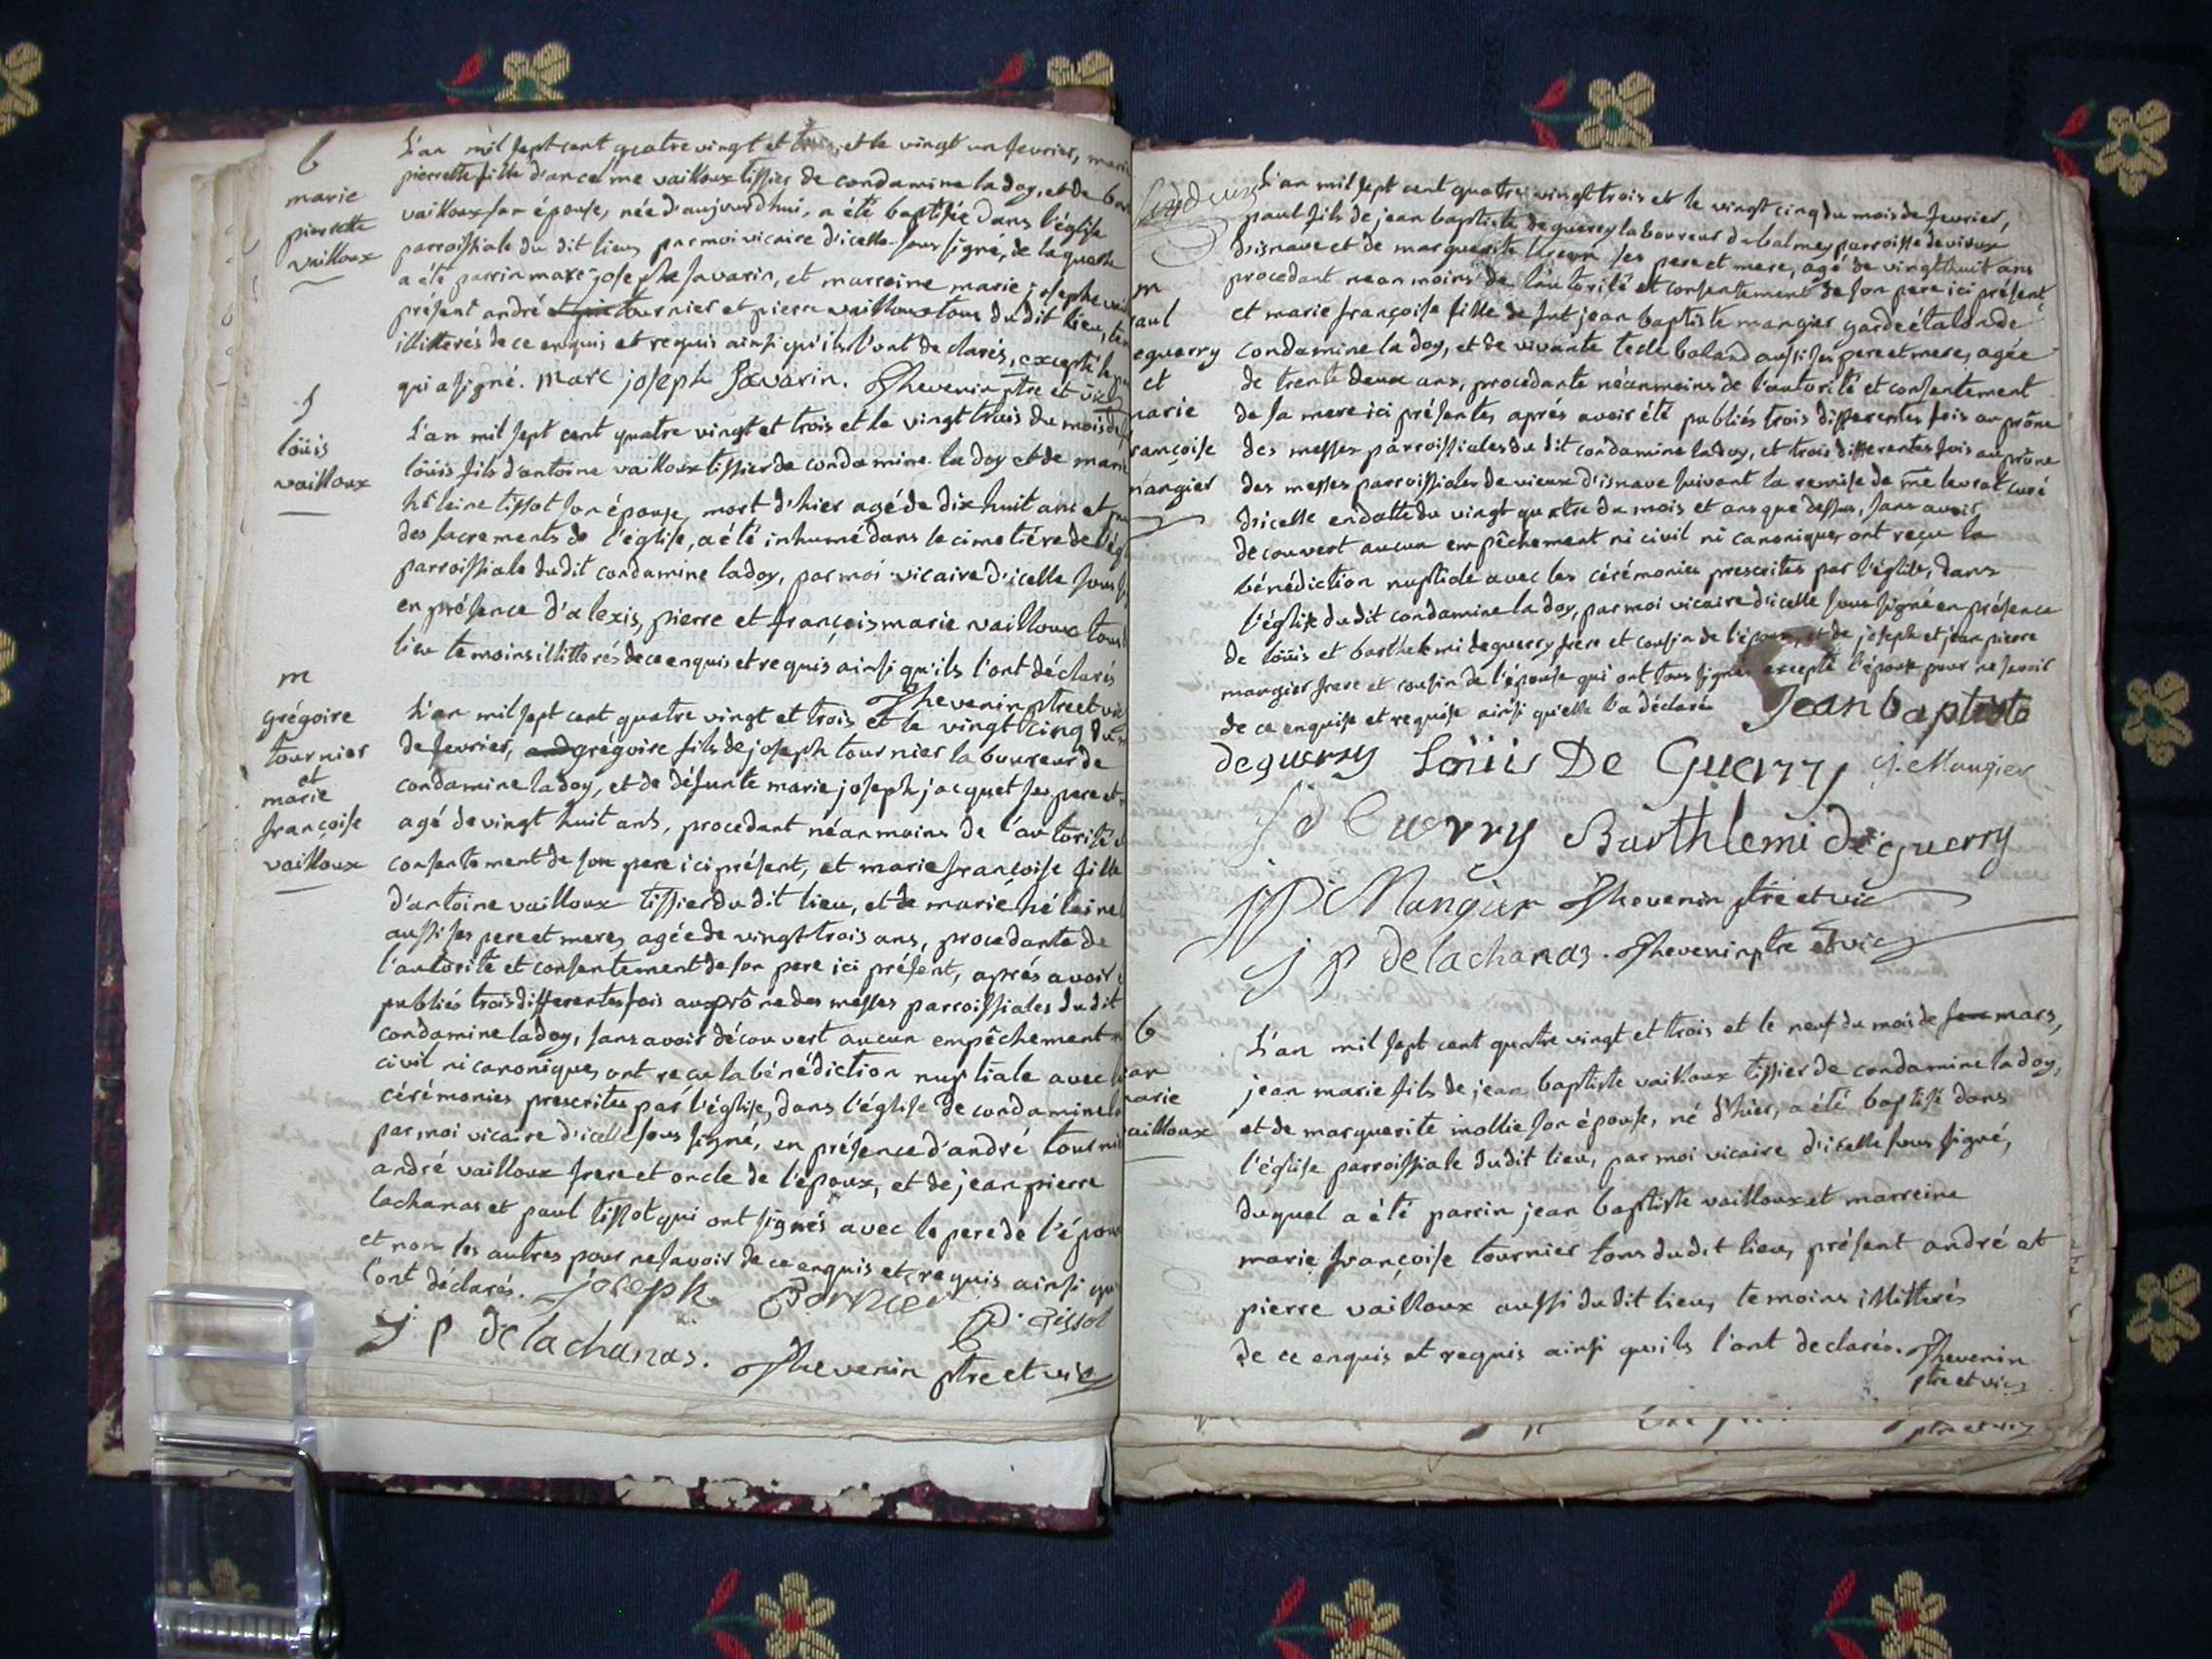 b
marie
pierrette
vailloux
L'an mil sept cent quatre vingt et trois, et le vingt un fevrier, marie
pierrette fille d'ancelme vailloux tissier de condamine la doy, et de
vailloux son épouse, née d'aujourd'hui, a été baptisée dans l'église
parroissiale du dit lieu, par moi vicaire d'icelle sous signé, de laquelle
a été parrin marc josephe savarin, et marreine marie josephe
présent andré tournier et pierre vailloux tous du dit lieu,
illitterés de ce enquis et requis ainsi qu'ils l'ont declarés, excepté le
qui a signé. Marc joseph Savarin. Thevenin ptre et vic
S
loüis
vailloux
L'an mil sept cent quatre vingt et trois et le vingt trois du mois de
loüis fils d'antoine vailloux tissier de condamine la doy et de marie
héleine tissot son épouse, mort d'hier agé de dix huit ans et
des sacrements de l'église, a été inhumé dans le cimetiére de
parroissiale du dit condamine la doy, par moi vicaire d'icelle sous
en présence d'alexis, pierre et françois marie vailloux tous
lieu temoins illitterés de ce enquis et requis ainsi qu'ils l'ont déclarés
Thevenin ptre et vic
m
grégoire
tournier
et
marie
françoise
vailloux
L'an mil sept cent quatre vingt et trois et le vingt cinq du
de fevrier, grégoire fils de joseph tournier laboureur de
condamine la doy, et de défunte marie joseph jacquet ses pere et
agé de vingt huit ans, procedant néanmoins de l'autorité
consentement de son pere ici présent, et marie françoise fille
d'antoine vailloux tissier du dit lieu, et de marie héleine
aussi ses pere et mere, agée de vingt trois ans, procedante de
l'autorité et consentement de son pere ici présent, aprés avoir
publiés trois differentes fois au prône des messes parroissiales du dit
condamine la doy, sans avoir découvert aucun empêchement
civil ni canonique, ont reçu la bénédiction nuptiale avec
cérémonies prescrites par l'église, dans l'église de condamine
par moi vicaire d'icelle sous signé, en présence d'andré
andré vailloux frere et oncle de l'époux, et de jean pierre
lachanas et paul tissot qui ont signés avec le pere de
et non les autres pour ne savoir de ce enquis et requis ainsi
l'ont déclarés. joseph Tornier
P. Tissot
J p De lachanas. Thevenin ptre et vic
L'an mil sept cent quatre vingt trois et le vingt cinq du mois de fevrier,
paul fils de jean baptiste deguerry laboureur de balmey parroisse de vieux
d'isnave et de marguerite ses pere et mere, agé de vingt huit ans
procedant neanmoins de l'autorité et consentement de son pere ici présent
m
aul
eguerry
et
marie
rançoise
mangier
et marie françoise fille de fut jean baptiste mangier garde étalon de
condamine la doy, et de vivante tecle baland aussi ses pere et mere, agée
de trente deux ans, procedante néanmoins de l'autorité et consentement
de sa mere ici présente, aprés avoir été publiés trois differentes fois au prône
des messes parroissiales du dit condamine la doy, et trois differentes fois au prône
des messes parroissiales de vieux d'isnave suivant la remise de me levrat curé
d'icelle en datte du vingt quatre du mois et an que dessus, sans avoir
découvert aucun empêchement ni civil ni canonique, ont reçu la
bénédiction nuptiale avec les cérémonies prescrites par l'église, dans
l'église du dit condamine la doy, par moi vicaire d'icelle sous signé en présence
de loüis et barthelemi deguerry frere et cousin de l'époux, et de joseph et jean pierre
mangier frere et cousin de l'épouse qui ont tous signés excepté l'épouse pour ne savoir
de ce enquise et requise ainsi qu'elle l'a déclaré Jean baptiste
deguerry Loüis De Guerry J. Mangier
Guerry Barthlemi deguerry
J P Mangier Thevenin ptre et vic
J p De lachanas. Thevenin ptre et vic
b
ean
marie
ailloux
L'an mil sept cent quatre vingt et trois et le neuf du mois de mars,
jean marie fils de jean baptiste vailloux tissier de condamine la doy,
et de marguerite mollie son épouse, né d'hier, a été baptisé dans
l'église parroissiale du dit lieu, par moi vicaire d'icelle sous signé,
duquel a été parrin jean baptiste vailloux et marreine
marie françoise tournier tous du dit lieu, présent andré et
pierre vailloux aussi du dit lieu, temoins illitterés
de ce enquis et requis ainsi qu'ils l'ont declarés. Thevenin
ptre et vic
ptre et vic